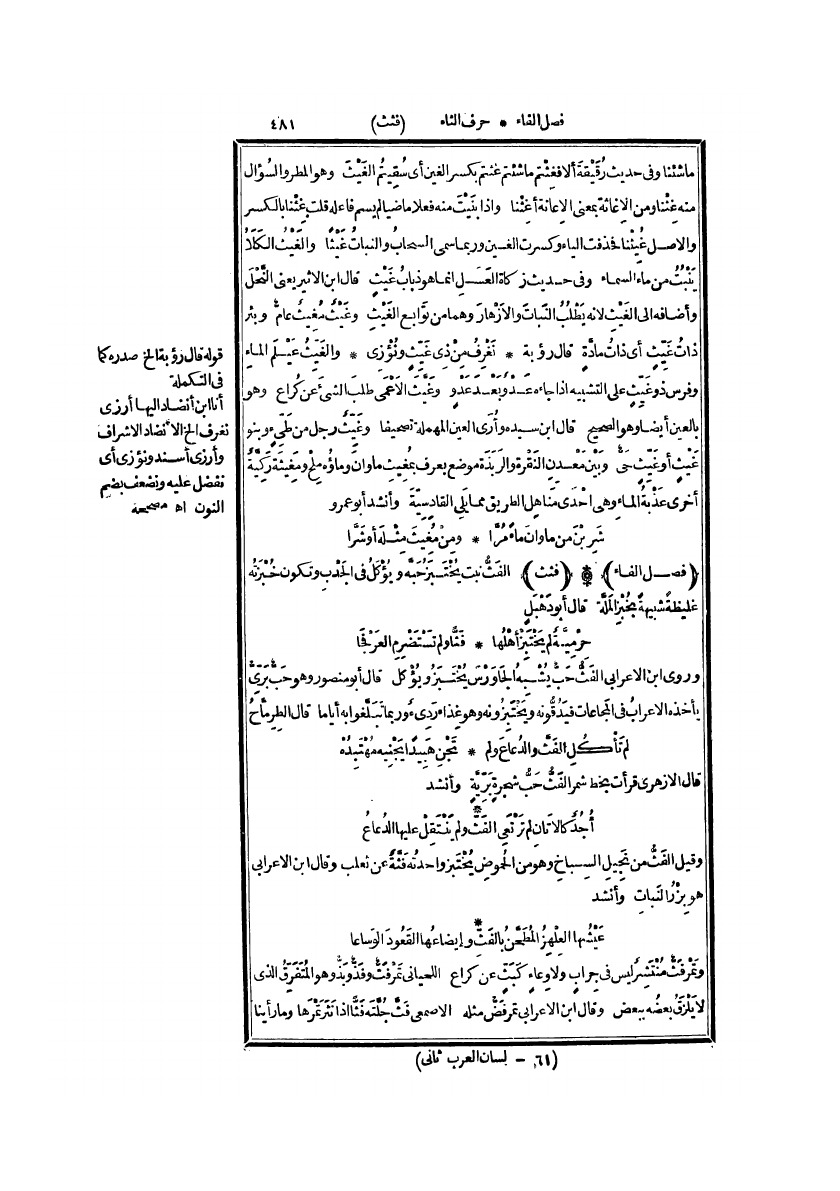 فصل الفاء * حرف الثاء (فثث) ٤٨١
ماشئنا وفى حديث رُقَيْقَة ألا فغِثْتم ماشئتم غثتم بكسر الغين أى سُقِيتُم الغَيْثَ وهو المطر والسؤال
منه غِثْنا ومن الاِغاثة بمعنى الاِعانة أغِثْنا واذا بنَيْتَ منه فعلا ماضيا لم يسم فاعله قلت غِثْنا بالكسر
والاصـل غُيِثْنا فحذفت الياء وكسرت الغـين وربما سمى السحاب والنبات غَيْثًا والغَيْثُ الكَلَأُ
يَنْبُتُ من ماء السماء وفى حـديث زكاة العَسَـلِ انما هو ذباب غَيْثٍ قال ابن الاثير يعنى النَّحْلَ
وأضافه الى الغَيْث لانه يَطْلُبُ النَّبات والاَزْهار وهما من تَوابع الغَيْثِ وغَيْثٌ مُغِيثٌ عامٌّ وبئر
ذاتُ غَيِّثٍ أى ذاتُ مادَّةٍ قال رؤبة * نَغْرِفُ مِنْ ذى غَيِّثٍ ونُؤْزى * والغَيِّثُ عَيْـلَم الماء
وفرس ذو غَيِّثٍ على التشبيه اذا جاءه عَـدْوٌ بَعْـدَ عَدْوٍ وغَيَّثَ الأعْمَى طلبَ الشئَ عن كراع وهو
بالعين أيضا وهو الصحيح قال ابن سيده وأُرَى العين المهملة تصحيفا وغَيْثٌ رجل من طَيِّء وبنو
غَيْثٍ أو غَيِّثٍ حَىٌّ وبَيْنَ مَعْدِن النَّقْرة والرَبَذة موضع يعرف بمُغِيث ماوان وماؤه ملح ومَغِيثة رَكِيَّةٌ
أخرى عَذْبةُ الماء وهى احدى مَناهِل الطريق مما يلى القادسِيَّة وأنشد أبو عمرو
شَرِبْنَ من ماوانَ ماءً مُرّا * ومِنْ مُغِيثَ مثْـلَه أو شَرَّا
(فصـل الفـاء) * (فثث) الفَثُّ نبت يُخْتَبَزُ حَبُّه ويُؤْكَلُ فى الجَدْب وتكون خُبْزتُه
غليظةً شبيهةً بخُبْزِ المَلَّة قال أبو دَهْبَلٍ
حِرْمِيَّـةٌ لم يَخْتَبِزْ أهْلُها * فَثًّا ولم تَسْتَضْرِمِ العَرْفَجا
وروى ابن الاعرابى الفَثُّ حَبٌّ يُشْـبِهُ الجاوَرْسَ يُخْتَبَزُ ويُؤْكل قال أبو منصور وهو حَبٌّ بَرِّىٌّ
يأخذه الاعرابُ فى المجاعات فيَدُقُّونه ويَخْتَبِزُونه وهو غذاء رَدِىء وربما تبَلَّغوا به أياما قال الطِرِمَّاحُ
لم تَأْكُلِ الفَثَّ والدُعاعَ ولم * تَجْنِ هَبِيدًا يَجْنِيه مُهْتَبِدُهْ
قال الازهرى قرأت بخط شمر الفَثُّ حَبُّ شجرة بَرِّيَّةٍ وأنشد
أُجُدٌ كالاتانِ لم تَرْتَعِ الفَثَّ * ولم يَنْتَقِلْ عليها الدُعاعُ
وقيل الفَثُّ من نَجِيل السِـباخِ وهو من الحُموضِ يُخْتَبز واحدته فَثَّةٌ عن ثعلب وقال ابن الاعرابى
هو بِزْرُ النَبات وأنشد
عَيْشُها العِلْهِزُ المُطَحَّنُ بالفَثِّ * وإيضاعُها القَعُودَ الوَساعا
وتَمْرٌ فَثٌّ مُنْتَشِرٌ ليس فى جِرابٍ ولا وِعاءٍ كَبَثٍّ عن كراع اللحيانى تَمْرٌ فَثٌّ وفَذٌّ وبَذٌّ وهو المُتَفَرِّقُ الذى
لا يَلْزَقُ بعضُه ببعض وقال ابن الاعرابى تمر فَضٌّ مثله الاصمعى فَثَّ جُلَّتَه فَثًّا اذا نَثَرَ تَمْرَها وما رأينا
قوله قال رؤبة الخ صدره كما
فى التكملة
أنا ابن أنضاد اليها أرزى
نغرف الخ الأنضاد الاشراف
وأرزى أسند ونؤزى أى
نفضل عليه ونضعف بضم
النون اه مصححه
(٦١ - لسان العرب ثانى)